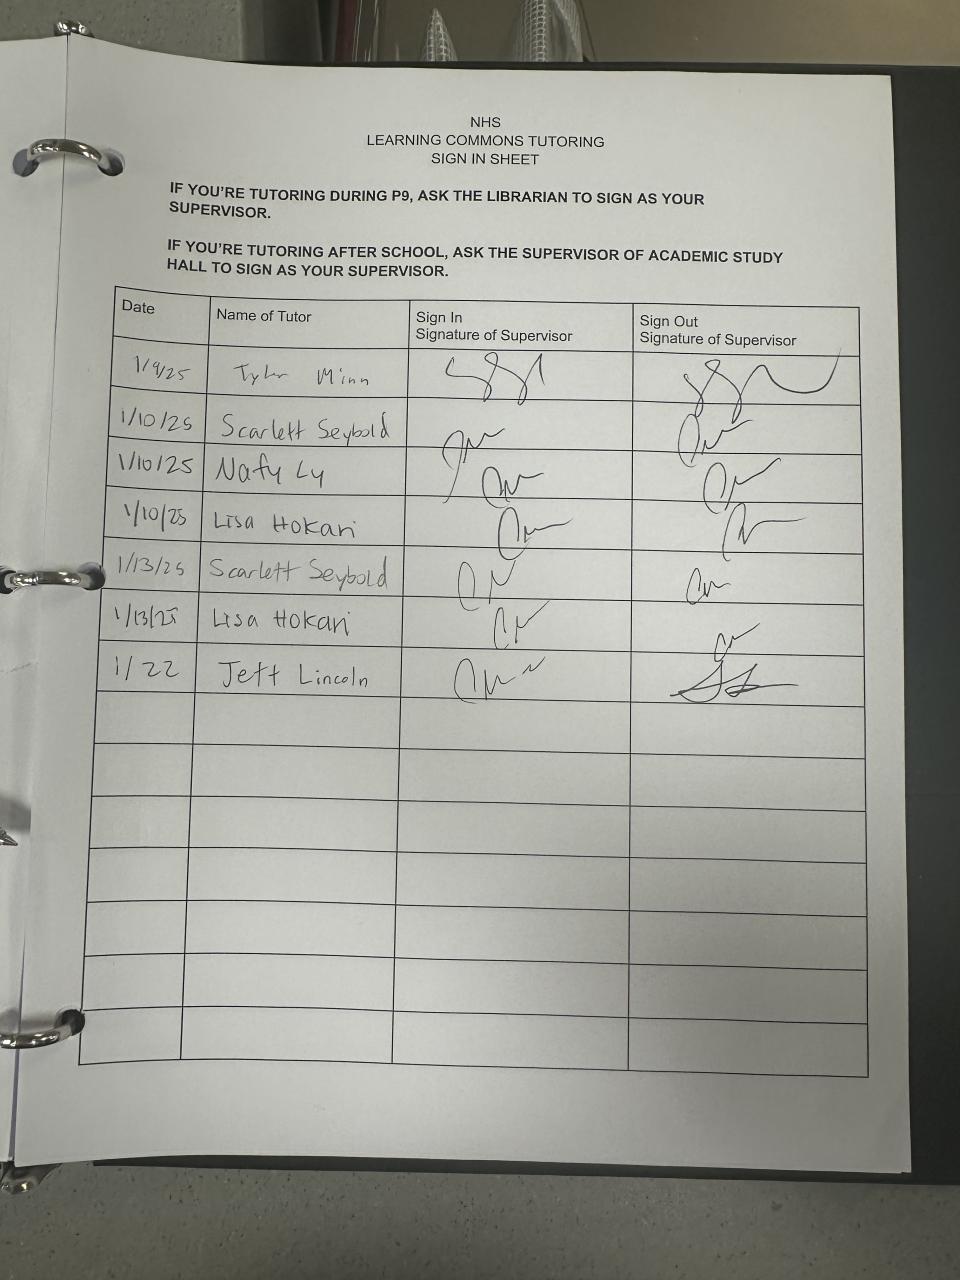 NHS
LEARNING COMMONS TUTORING
SIGN IN SHEET
IF YOU'RE TUTORING DURING P9, ASK THE LIBRARIAN TO SIGN AS YOUR
SUPERVISOR.
IF YOU'RE TUTORING AFTER SCHOOL, ASK THE SUPERVISOR OF ACADEMIC STUDY
HALL TO SIGN AS YOUR SUPERVISOR.
Date Name of Tutor Sign In Sign Out
Signature of Supervisor Signature of Supervisor
1/9/25 Tyler Minn
1/10/25 Scarlett Seybold
1/10/25 Nafy Ly
1/10/25 Lisa Hokari
1/13/25 Scarlett Seybold
1/13/25 Lisa Hokari
1/22 Jett Lincoln